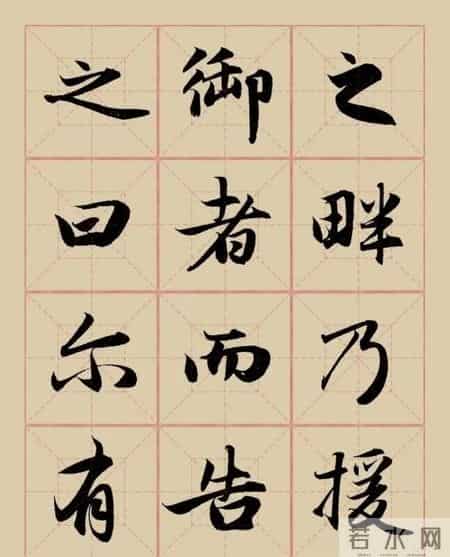 之畔乃援
御者而告
之曰尓有
若水网